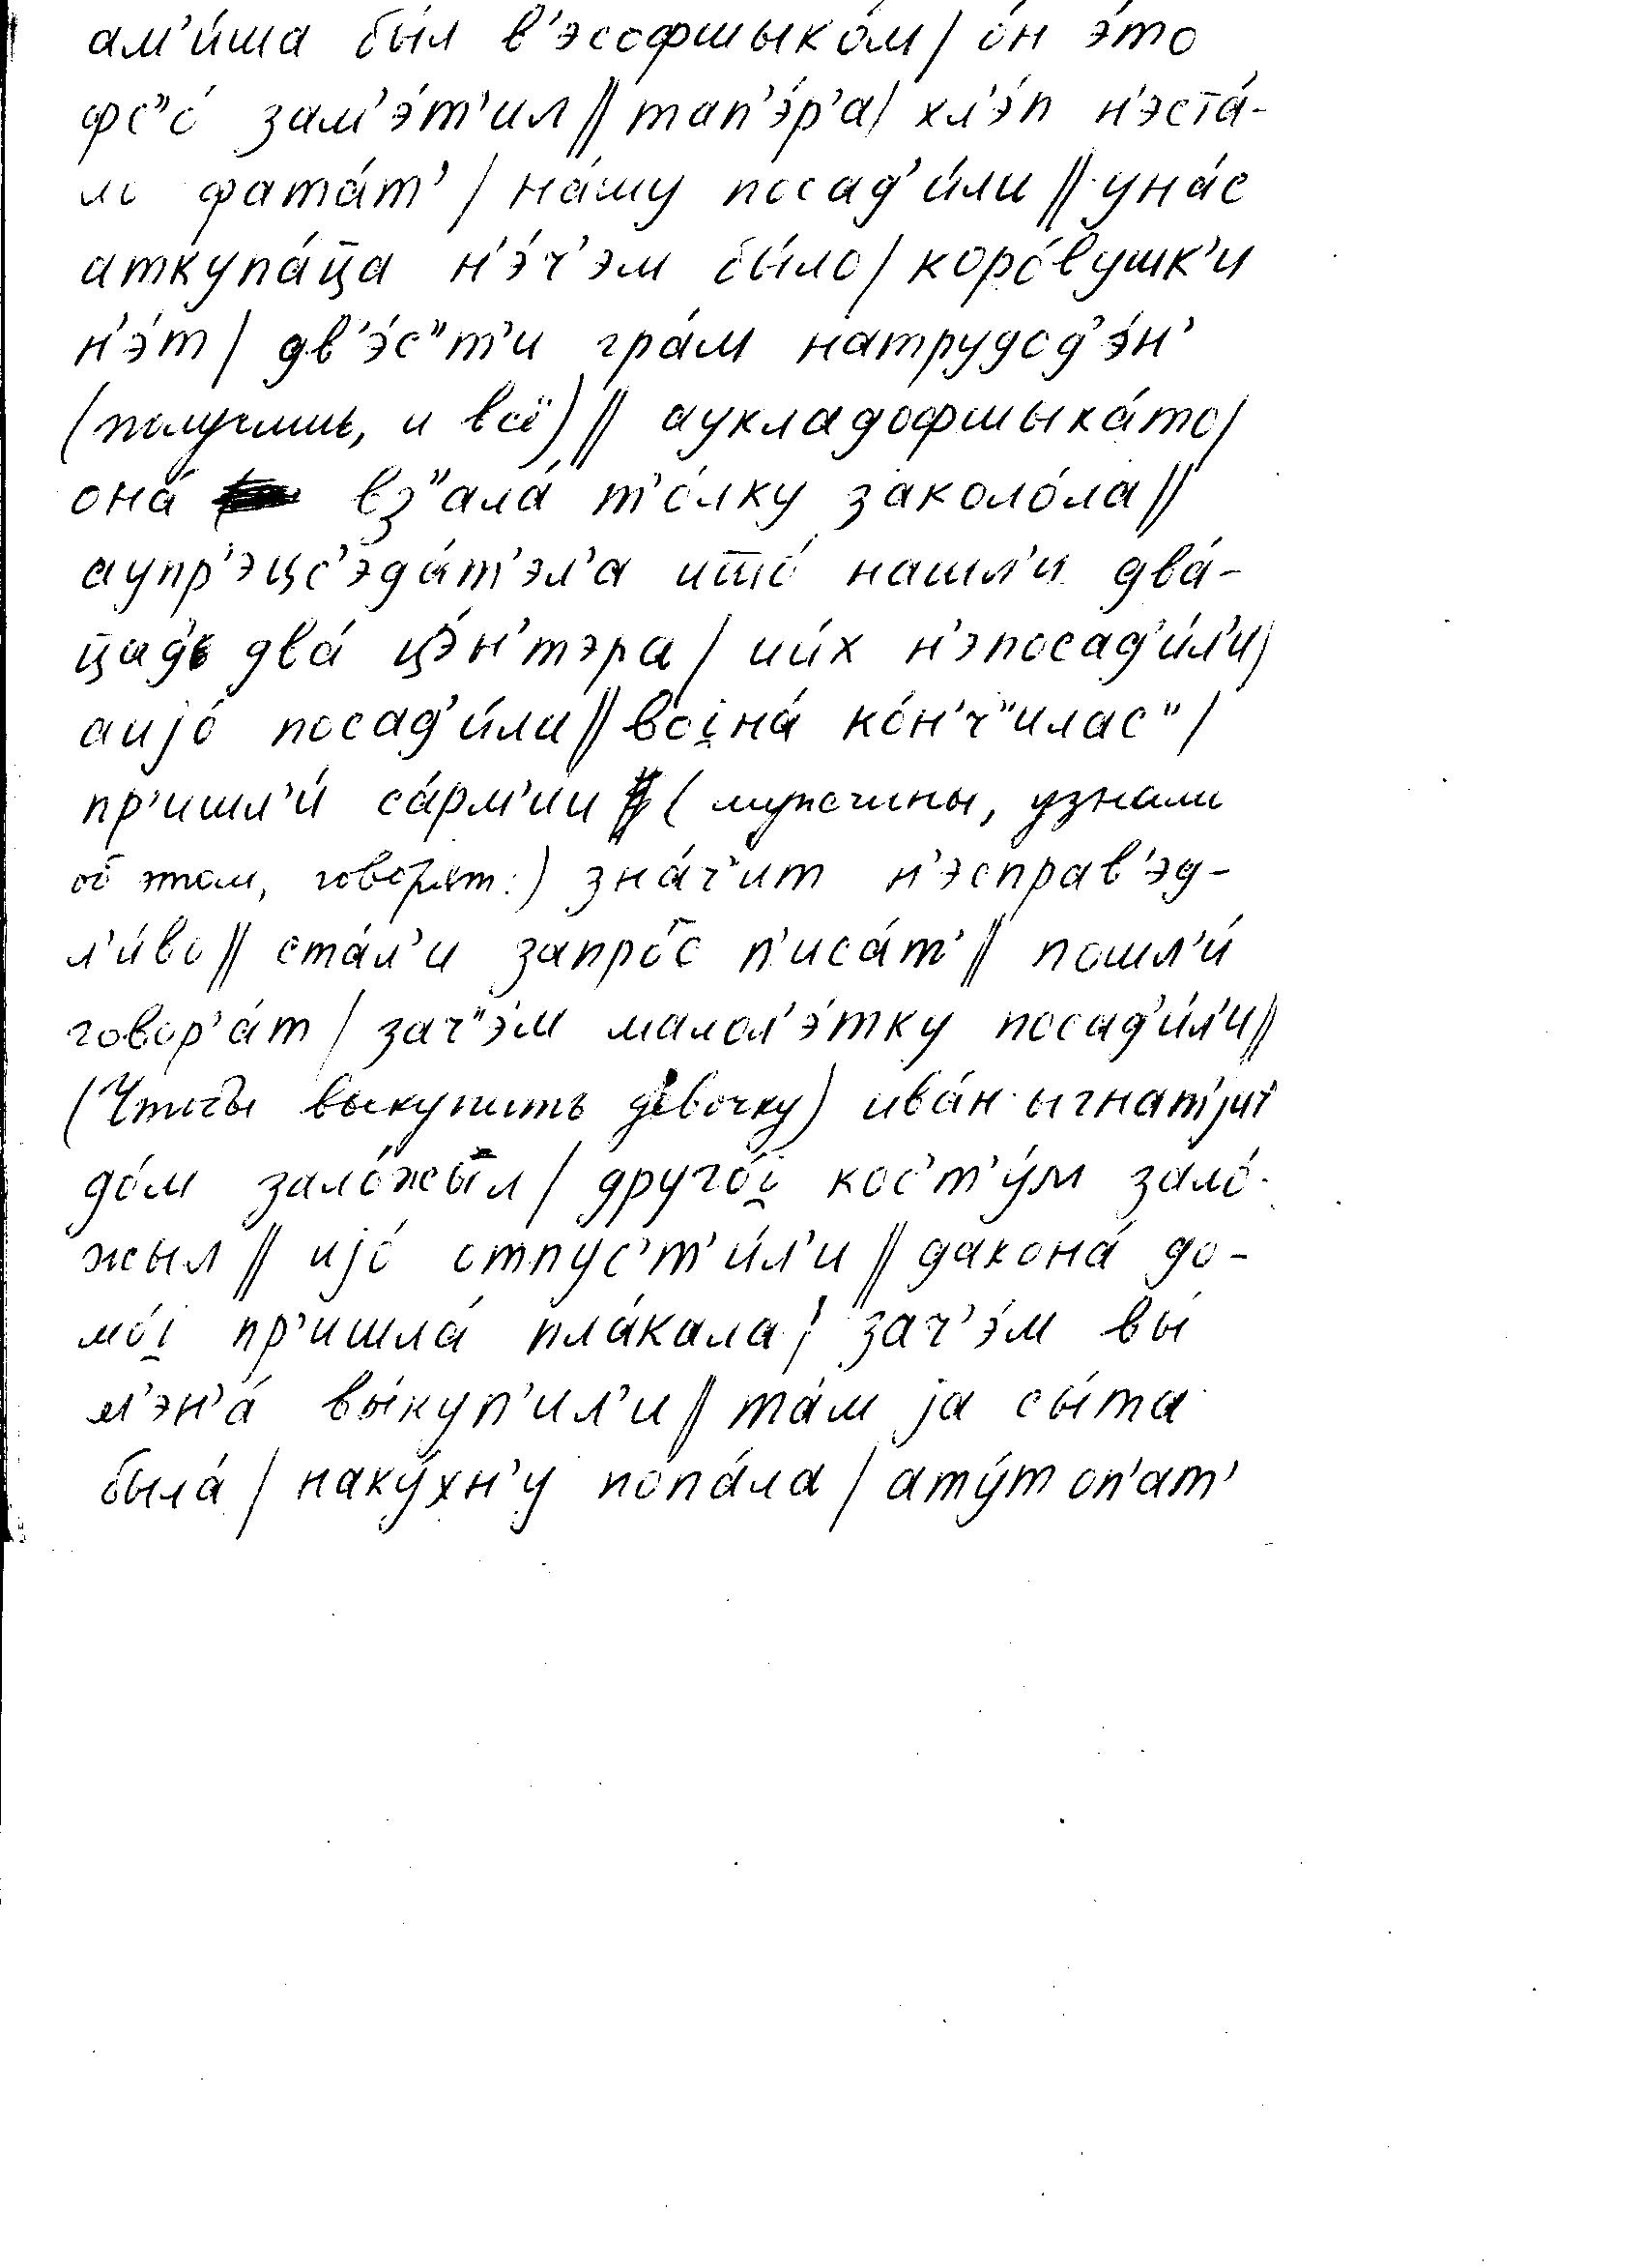 ам'и́ша бы́л в'эсофшыко́м/ о́н э́то
фс"о́ зам'э́т'ил// тап'э́р'а/ хл'э́п н'эста́-
ло фата́т'/ на́шу посад'и́ли// уна́с
аткупа́ц̅а н'э́ч'эм бы́ло/ коро́вушк'и
н'э́т/ дв'э́с"т'и гра́м натрудод'э́н'
(получишь, и всё)// аукладофшыка́то/
она́ вз"ала́ т'о́лку заколо́ла//
аупр'эцс'эда́т'эл'а што́ нашл'и два́-
ц̅адь два́ цэ́н'тэра/ ии́х н'эпосад'и́л'и/
аиjо́ посад'и́ли// вои̯на́ ко́н'ч"илас"/
пр'ишл'и́ са́рм'ии (мужчины, узнали
об этом, говорят:) зна́ч'ит н'эсправ'эд-
л'и́во// ста́л'и запро́с п'иса́т'// пошл'и́
говор'а́т/ зач"э́м малол'э́тку посад'и́л'и//
(Чтобы выкупить девочку) ива́н ыгнат'jич
до́м зало́жыл/ друго́i̯ кос'т'у́м зало́-
жыл// иjо́ отпус'т'и́л'и// дакона́ до-
мо́i̯ пр'ишла́ пла́кала/ зач'э́м вы́
м'эн'а́ вы́куп'ил'и// та́м jа сы́та
была́/ наку́хн'у попа́ла/ ату́т оп'ат'